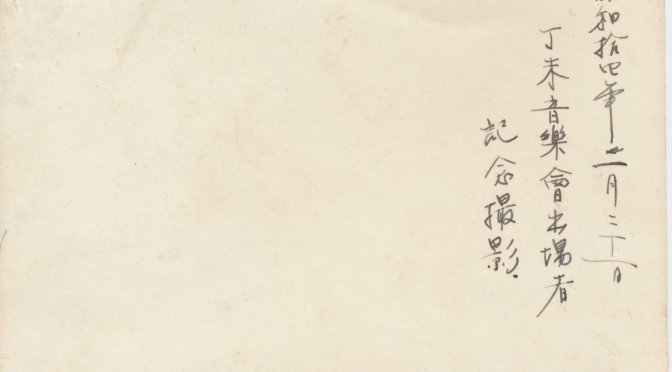 昭和拾四年十二月二十一日
丁未音樂會出場者
記念撮影.